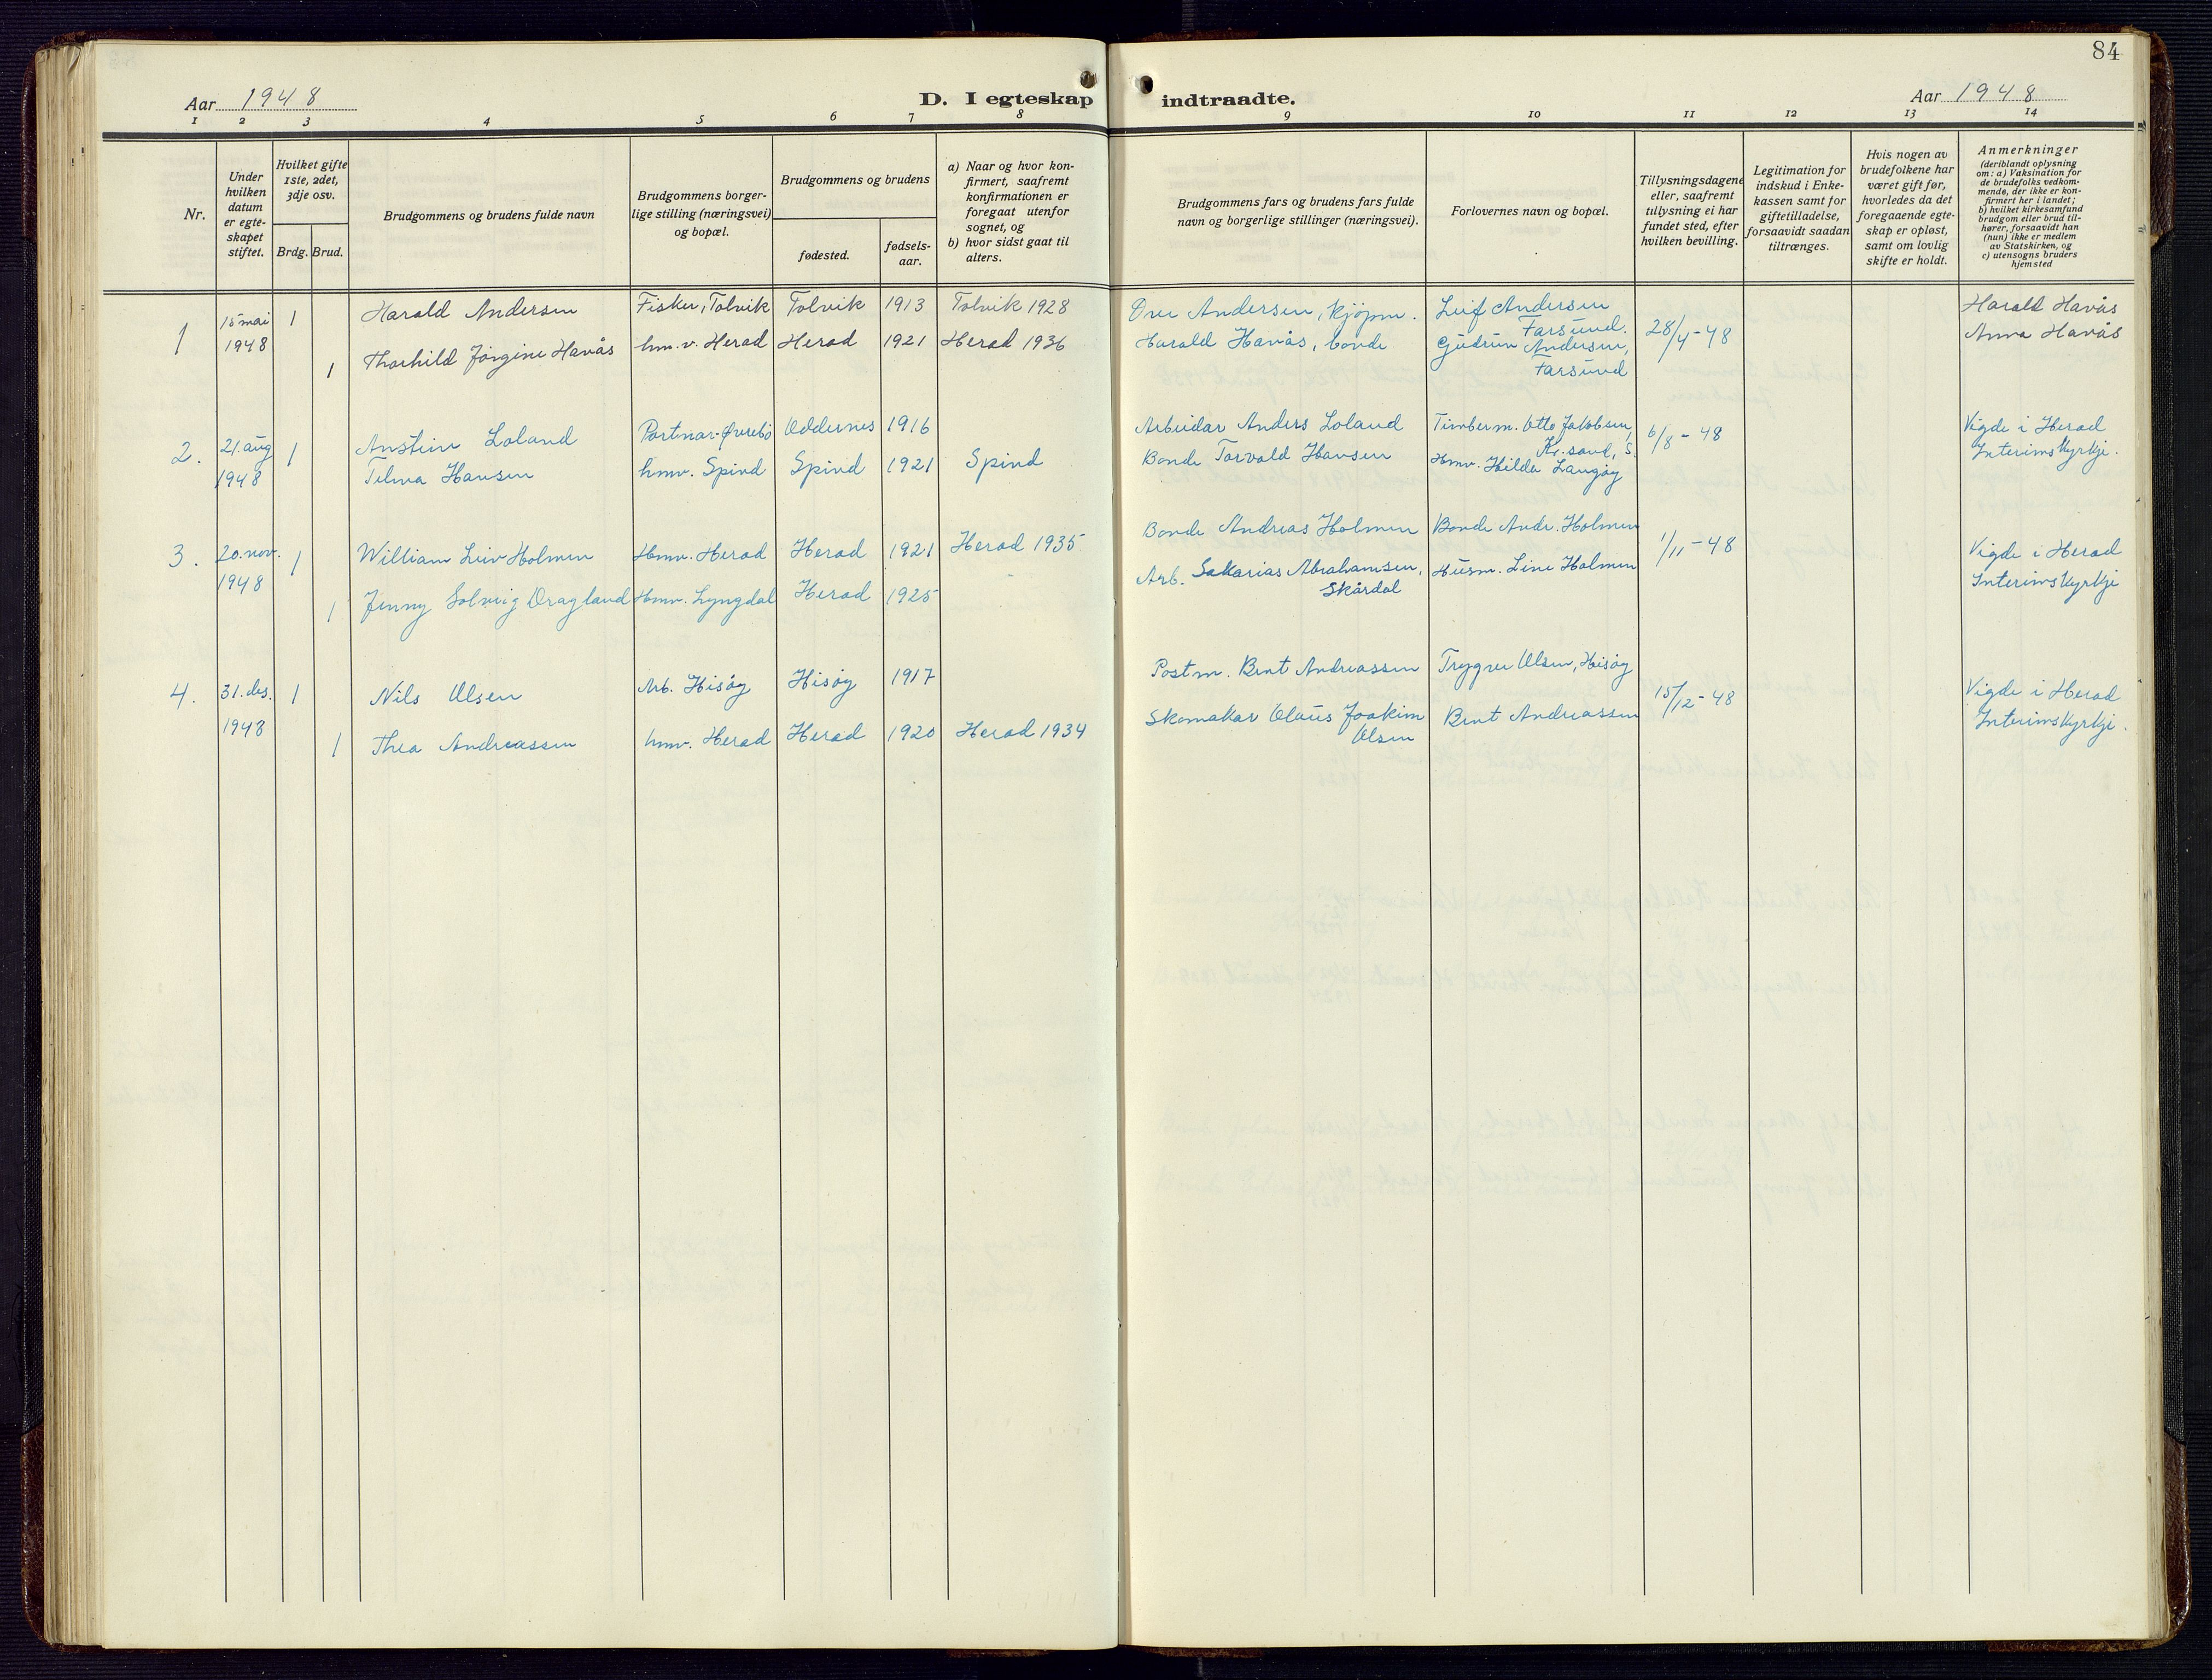 84
Aar 1948
D. I egteskap indtraadte.
Aar 1948
1 2 3 4 5 6 7 8 9 10 11 12 13 14
Nr.
Under
hvilken
datum
er egte-
skapet
stiftet.
Hvilket gifte
1ste, 2det,
3dje osv.
Brdg. Brud.
Brudgommens og brudens fulde navn
Brudgommens borger-
lige stilling (næringsvei)
og bopæl.
Brudgommens og brudens
fødested.
fødsels-
aar.
a) Naar og hvor kon-
firmert, saafremt
konfirmationen er
foregaat utenfor
sognet, og
b) hvor sidst gaat til
alters.
Brudgommens fars og brudens fars fulde
navn og borgerlige stillinger (næringsvei).
Forlovernes navn og bopæl.
Tillysningsdagene
eller, saafremt
tillysning ei har
fundet sted, efter
hvilken bevilling.
Legitimation for
indskud i Enke-
kassen samt for
giftetilladelse,
forsaavidt saadan
tiltrænges.
Hvis nogen av
brudefolkene har
været gift før,
hvorledes da det
foregaaende egte-
skap er opløst,
samt om lovlig
skifte er holdt.
Anmerkninger
(deriblandt oplysning
om: a) Vaksination for
de brudefolks vedkom-
mende, der ikke er kon-
firmert her i landet;
b) hvilket kirkesamfund
brudgom eller brud til-
hører, forsaavidt han
(hun) ikke er medlem
av Statskirken, og
c) utensogns bruders
hjemsted
1 15 mai 1948 1 Harald Andersen Fisker, Tolvik Tolvik 1913 Tolvik 1928 Øve Andersen, kjøpm. Leif Andersen Farsund. 28/4-48 Harald Havås
1 Thorhild Jørgine Havås hm.v. Herad Herad 1921 Herad 1936 Harald Havås, bonde Gudrun Andersen, Farsund Anna Havås
2. 21. aug 1948 1 Anstein Loland Portnar-Øvrebø Oddernes 1916 Arbeidar Anders Loland Timberm. Otto Jakobsen, Kr.sand, S. 6/8-48 Vigde i Herad
Telma Hansen hmv. Spind Spind 1921 Spind Bonde Torvald Hansen Hmv. Hilda Langøy Interimskyrkje.
3. 20. nov. 1948 1 William Leiv Holmen Hmv. Herad Herad 1921 Herad 1935 Bonde Andreas Holmen Bonde Andr. Holmen 1/11-48 Vigde i Herad
1 Jenny Solveig Dragland Hmv. Lyngdal Herad 1925 Arb. Sakarias Abrahamsen, Skårdal Husm. Line Holmen Interimskyrkje
4. 31. des. 1948 1 Nils Olsen Arb. Hisøy Hisøy 1917 Postm. Bent Andreassen Trygve Olsen, Hisøy 15/12-48 Vigde i Herad
1 Thea Andreassen hmv. Herad Herad 1920 Herad 1934 Skomakar Olaus Joakim Olsen Bent Andreassen Interimskyrkje.